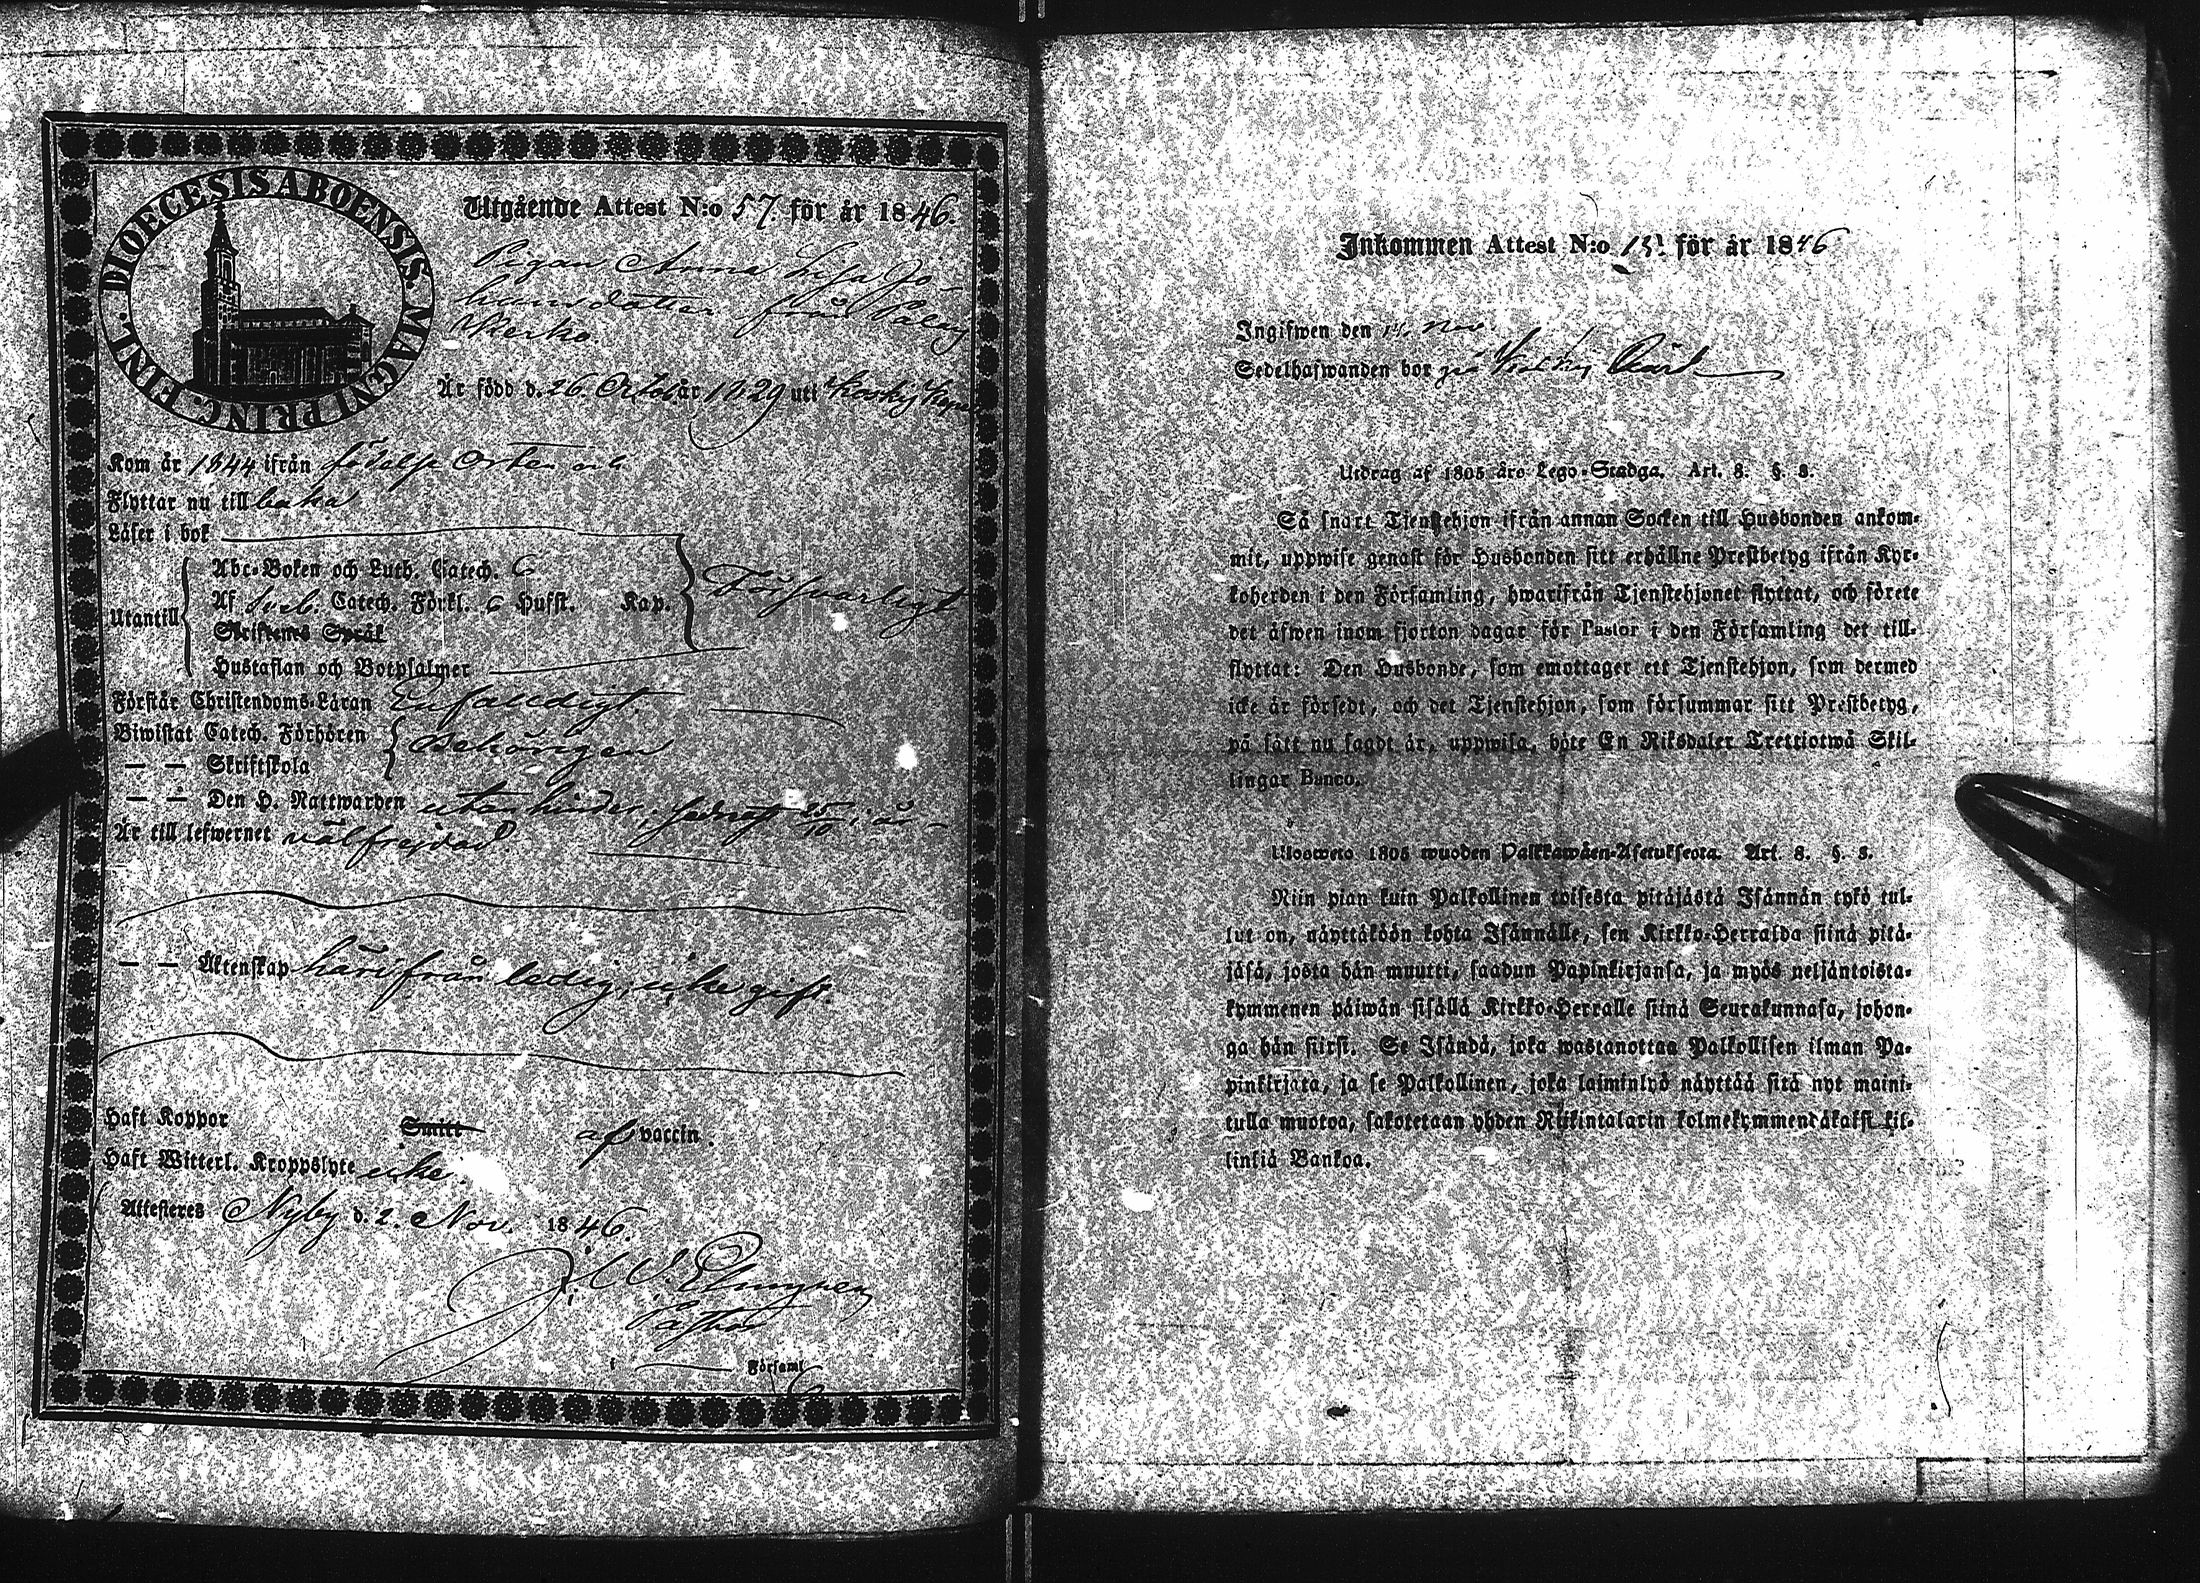 DIOECESIS ABOENSIS. MAGNI PRINC. FINL.
Utgående Attest N:o 57. för år 1846.
Pigan Anna Lisa Jo-
hansdotter från
Är född d. 26. Octob. år 1829 uti Koskis
Kom år 1844 ifrån födelse orten och
Flyttar nu till baka
Läser i bok
Abc-Boken och Luth. Catech.
Af Sveb. Catech. Förkl. Husst. Kap.
Utantill
Försvarligt
Skriftenes Språk
Hustaflan och Botpsalmer
Förstår Christendoms-Läran Enfaldigt.
Biwistat Catech. Förhören
Behörigen
— — Skriftskola
— — Den H. Nattwarden utan hinder, sednast 25/10 i år
Är till lefwernet välfrejdad.
— — Äktenskap härifrån ledig, icke gift.
Haft Koppor Smitt af vaccin.
Haft Witterl. Kroppslyte icke.
Attesteras Nyby d. 2. Nov. 1846.
Pastor
i Församl.
Inkommen Attest N:o för år 1846
Ingifwen den Nov.
Sedelhafwanden bor på Gård
Utdrag af 1805 års Lego-Stadga. Art. 8. §. 3.
Så snart Tjenstehjon ifrån annan Socken till Husbonden ankom-
mit, uppwise genast för Husbonden sitt erhållne Prestbetyg ifrån Kyr-
koherden i den Församling, hwarifrån Tjenstehjonet flyttat, och förete
det äfwen inom fjorton dagar för Pastor i den Församling det till-
flyttat: Den Husbonde, som emottager ett Tjenstehjon, som dermed
icke är försedt, och det Tjenstehjon, som försummar sitt Prestbetyg,
på sätt nu sagdt är, uppwisa, böte En Riksdaler Trettiotwå Skil-
lingar Banco.
Ulosweto 1805 wuoden Palkkawäen-Asetuksesta. Art. 8. §. 3.
Niin pian kuin Palkollinen toisesta pitäjästä Isännän tykö tul-
lut on, näyttäköön kohta Isännälle, sen Kirkko-Herralda siinä pitä-
jäsä, josta hän muutti, saadun Papinkirjansa, ja myös neljäntoista-
kymmenen päiwän sisällä Kirkko-Herralle siinä Seurakunnasa, johon-
ga hän siirsi. Se Isändä, joka wastanottaa Palkollisen ilman Pa-
pinkirjata, ja se Palkollinen, joka laiminlyö näyttää sitä nyt maini-
tulla muotoa, sakotetaan yhden Riikintalarin kolmekymmendäkaksi kil-
linkiä Bankoa.